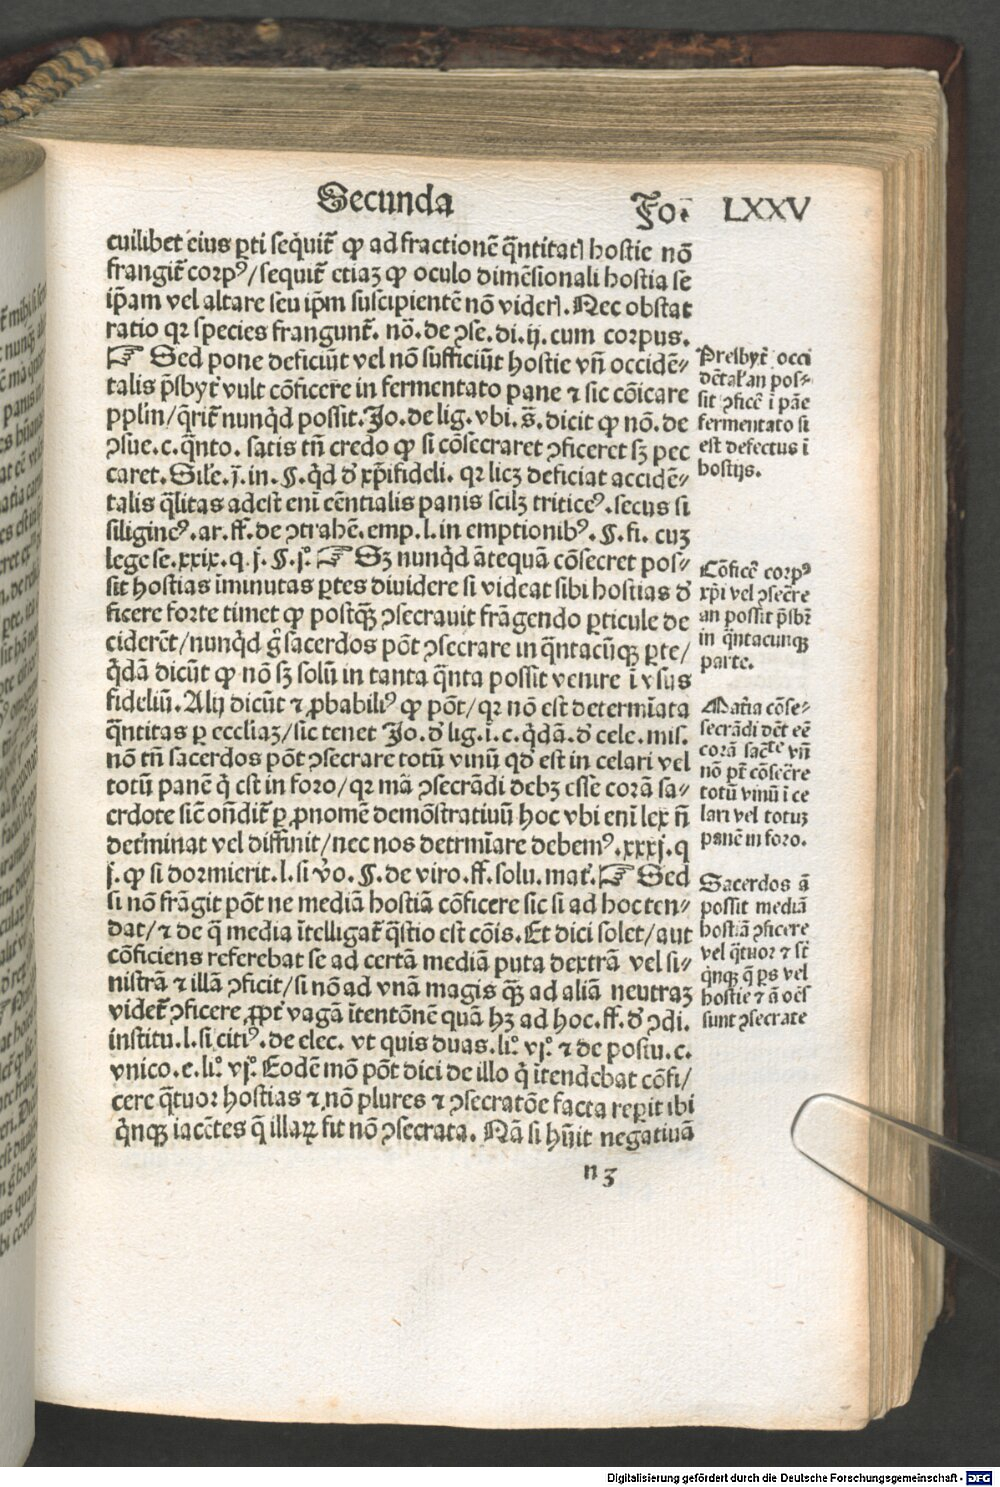 Secunda Fo. LXXV
cuilibet eius ꝑti seqͥtur̄ ꝙ ad fractionē q̄ntitatꝭ hostie nō
frangit̄ corpꝰ/sequit̄ etiaꝫ ꝙ oculo dimēsionali hostia se
ip̄am vel altare seu ip̄m suscipientē nō viderꝭ. Nec obstat
ratio qꝛ species frangunt̄. nō. de ꝯse. di. ij. cum corpus.
☞ Sed pone deficiūt vel nō sufficiūt hostie vn̄ occidē⸗
talis p̄sbyt̄ vult cōficere in fermentato pane ⁊ sic cōicare
pplm/q̄rit̄ nunqͥd possit. Jo. de lig. vbi. s̄. dicit ꝙ nō. de
ꝯsue. c. qͥnto. satis tn̄ credo ꝙ si cōsecraret ꝯficeret sꝫ pec
caret. Sile. j. in. §. qͥd ď xp̄ifideli. qꝛ licꝫ deficiat accidē⸗
talis q̄litas adest eni ēcentialis panis scilꝫ triticeꝰ. secus si
siligineꝰ. ar. ff. de ꝯtrahē. emp. l. in emptionibꝰ. §. fi. cuꝫ
lege se. xxix. q. j. §. jͦ. ☞ Sꝫ nunqͥd āteꝙā cōsecret pos⸗
sit hostias ī minutas ꝑtes diuidere si videat sibi hostias ď
ficere forte timet ꝙ postqͣꝫ ꝯsecrauit frāgendo ꝑticule de
ciderēt/nunqͥd gͦ sacerdos pōt ꝯsecrare in q̄ntacūqꝫ ꝑte/
qͥdā dicūt ꝙ nō sꝫ solū in tanta q̄nta possit venire ī vsus
fidelīu. Alij dicūt ⁊ ꝓbabiliꝰ ꝙ pōt/qꝛ nō est determīata
q̄ntitas ꝑ eccliaꝫ/sic tenet Jo. ď lig. ī. c. qͥdā. ď cele. mis.
nō tn̄ sacerdos pōt ꝯsecrare totū vinū qď est in celari vel
totū panē qͥ est in foro/qꝛ mā ꝯsecrādi debꝫ esse corā sa⸗
cerdote sicͥ on̄dit̄ ꝑ ꝓnomē demōstratiuū hoc vbi eni lex n̄
det̄minat vel diffinit/nec nos detrmīare debemꝰ. xxxj. q
j. ꝙ si dormierit. l. si v̄o. §. de viro. ff. solu. mat̄. ☞ Sed
si nō frāgit pōt ne mediā hostiā cōficere sic si ad hoc ten⸗
dat/⁊ de q̄ media ītelligat̄ q̄stio est cōis. Et dici solet/aut
cōficiens referebat se ad certā mediā puta dextrā vel si⸗
nistrā ⁊ illā ꝯficit/si nō ad vnā magis qͣꝫ ad aliā neutraꝫ
videt̄ ꝯficere ꝓpt̄ vagā ītentōnē quā hꝫ ad hoc. ff. ď ꝯdi.
institu. l. si citiꝰ. de elec. vt quis duas. li. vjͦ. ⁊ de postu. c.
vnico. e. li. vjͦ. Eodē mō pōt dici de illo qͥ ītendebat cōfi/
cere q̄tuor hostias ⁊ nō plures ⁊ ꝯsecratōe facta reperit ibi
qͥnqꝫ iacētes q̄ illaꝝ fit nō ꝯsecrata. Nā si hūit negatiuā
n 3
Presbyt̄ occi
dētal' an pos⸗
sit ꝯficē ī pāe
fermentato si
est defectus ī
hostijs.
Cōficē corpꝰ
xp̄i vel ꝯsecr̄e
an possit p̄sbr̄
in q̄ntacunqꝫ
parte.
Mat̄ia cōse⸗
secrādi dēt eē
corā sacͭᵉ vn̄
nō pt̄ cōsecr̄e
totū vinū ī ce
lari vel totuꝫ
panē in foro.
Sacerdos ā
possit mediā
hostiā ꝯficere
vel q̄tuor ⁊ st̄
qͥnqꝫ q̄ ꝑs vel
hostie ⁊ ā oēs
sunt ꝯsecrate
Digitalisierung gefördert durch die Deutsche Forschungsgemeinschaft - DFG